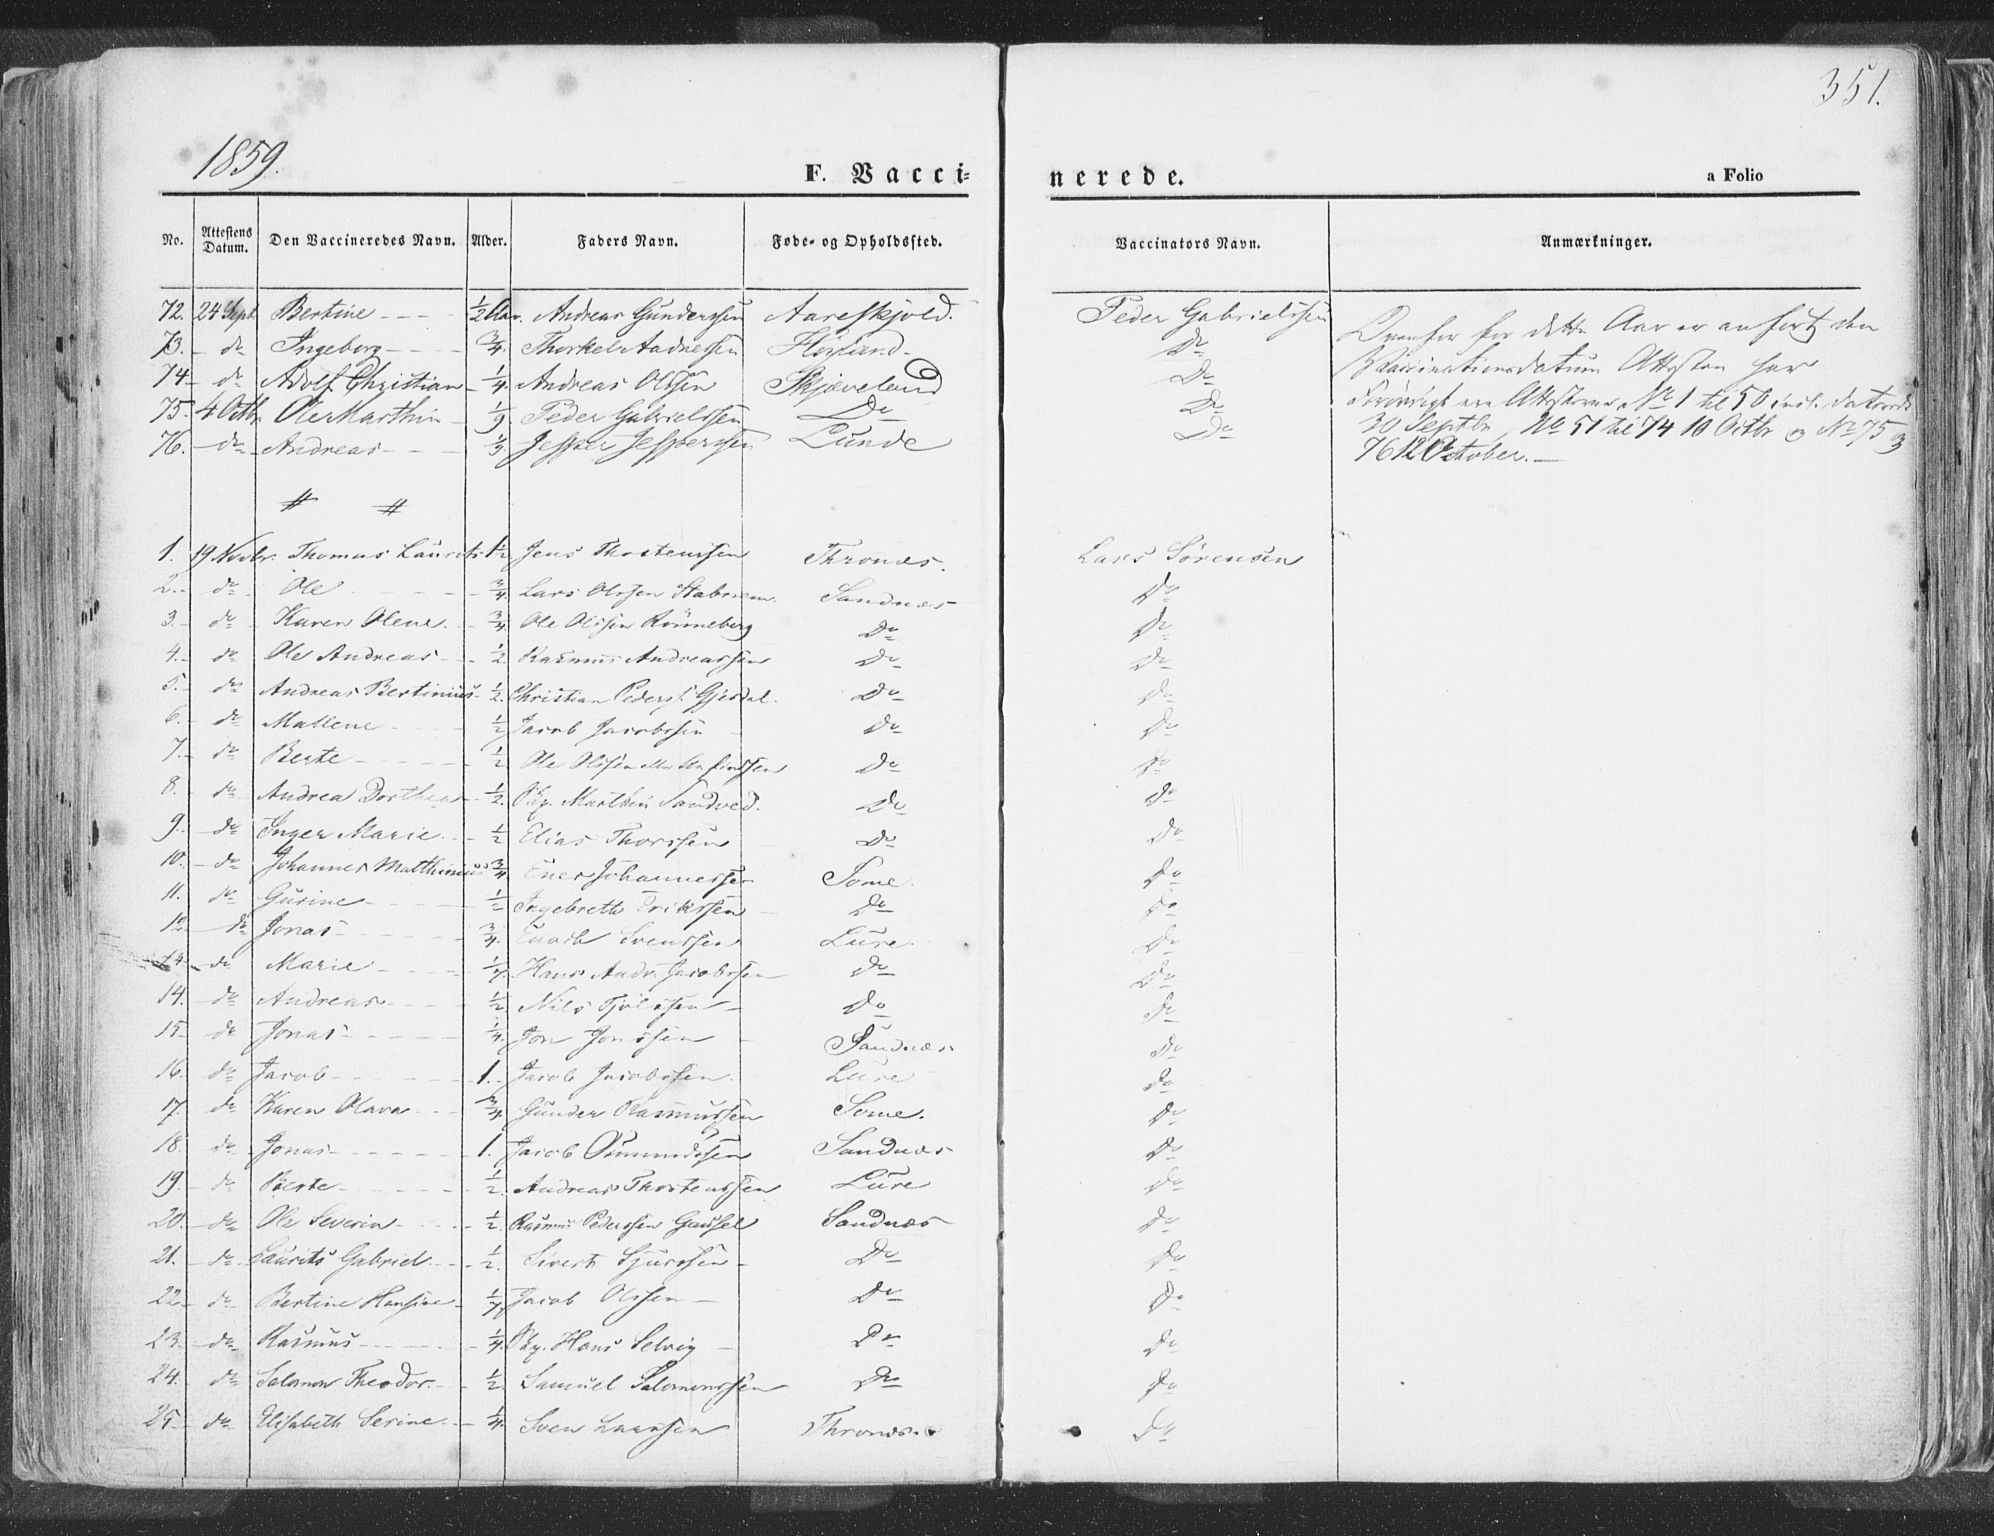 351.
1859.
F. Vacci= nerede. a Folio
No. Attestens Datum. Den Vaccineredes Navn. Alder. Faders Navn. Føde- og Opholdssted. Vaccinators Navn. Anmærkninger.
72. 24 Sept. Bertine 1/2 Aar. Andreas Gunderssen Aareskjold. Peder Gabrielssen
73. do Ingeborg 3/4. Thorkel Aadnessen Høyland Do
74 do Adolf Christian 1/4. Andreas Olssen Skjæveland Do
75. 4 Octbr. Ole Marthin Peder Gabrielssen Do Do
76. do Andreas Jesper Jesperssen Lunde Do
Ovenfor for dette Aar er anført den
Vaccinationsdatum Attesten har
Forøvrigt ere Attesterne No 1 til 50 incl. daterede
30 Septbr, No 51 til 74 10 Octbr og No 75 og
76 12 October.
# #
1. 19 Novbr. Thomas Laurits 1 1/2 Jens Thorstenssen Thronæs. Lars Sørensen
2. do Ole 3/4. Lars Olssen Sandnæs Do
3. do Karen Olene 3/4 Ole Olssen Rønneberg Do Do
4. do Ole Andreas 1/2. Rasmus Andreassen Do Do
5. do Andreas Bertinius 1/2. Christian Peders. Gjesdal. Do Do
6. do Mallene 1/2 Jacob Jacobssen Do Do
7. do Berte 1/2 Ole Olssen Do Do
8. do Andrea Dorthea 1/2. Marthin Sandved. Do Do
9. do Inger Marie 1/2 Elias Thorssen Do Do
10. do Johannes Matthinius 3/4 Johannessen Some. Do
11. do Gurine 1/2 Ingebreth Erikssen Do Do
12. do Jonas 3/4. Enoch Svenssen Lure. Do
13. do Marie 1/7. Hans Andr. Jacobssen Do Do
14. do Andreas 1/2 Nils Do Do
15. do Jonas 1/4. Jon Jonssen Sandnæs Do
16. do Jacob 1. Jacob Jacobssen. Lure Do
17. do Karen Olava 3/4 Gunder Rasmussen Some. Do
18. do Jonas 1. Jacob Osmundssen Sandnæs Do
19. do Berte 1/2. Andreas Thorstenssen Lure Do
20. do Ole Severin 1/2. Rasmus Pederssen Gausel Sandnæs Do
21. do Laurits Gabriel 1/2. Sivert Sjurssen Do Do
22. do Bertine Hansine 1/7. Jacob Olssen Do Do
23. do Rasmus 1/4. Hans Selvig Do Do
24. do Salomon Theodor. 1/2. Samuel Salomonssen Do Do
25. do Elisabeth Serine 1/4. Sven Larssen Thronæs. Do